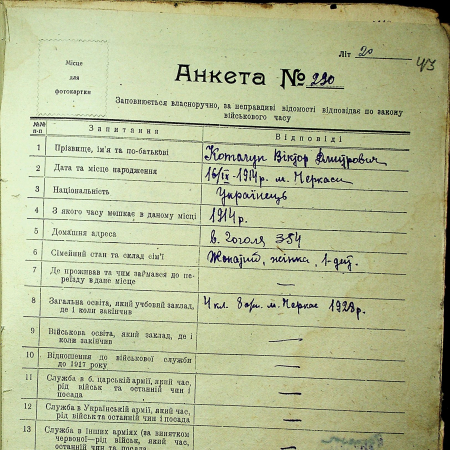 Місце
для
фотокартки
Літ 20
43
Анкета № 230
Заповнюється власноручно, за неправдиві відомості відповідає по закому
військового часу
№№ п-п Запитання Відповіді
1 Прізвище, ім'я та по-батькові Віктор Дмитрович
2 Дата та місце народження 16/IX-1914р. м. Черкаси
3 Національність Українець
4 З якого часу мешкає в даному місці 1914р.
5 Домашня адреса в. Гоголя 354
6 Сімейний стан та склад сім'ї Жонатий, жінка, 1-дит.
7 Де проживав та чим займався до пе-
реїзду в дане місце —
8 Загальна освіта, який учбовий заклад,
де і коли закінчив
4 кл. м. Черкас 1928р.
9 Військова освіта, який заклад, де і
коли закінчив —
10 Відношення до військової служби
до 1917 року —
11 Служба в б. царській армії, який час,
рід військ та останній чин і
посада —
12 Служба в Українській армії, який час,
рід військ та останній чин і посада —
13 Служба в інших арміях (за винятком
червоної—рід військ, який час,
останній чин та посада —